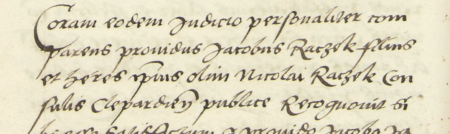 Coram eodem Judicio personaliter com
parens providus Jacobus Raczek filius
et heres ipsius olim Nicolai Raczek Con
sulis Clepardien publice Recognovit Si